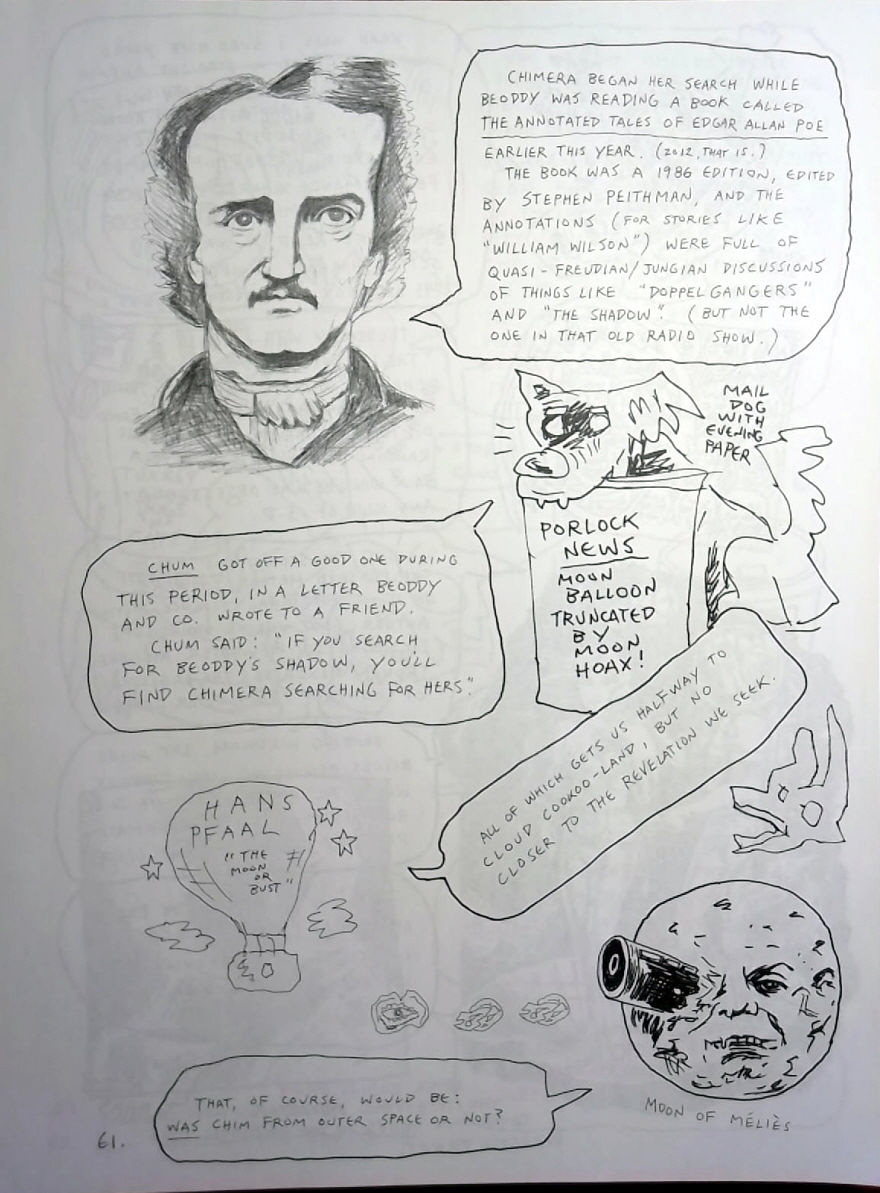 CHIMERA BEGAN HER SEARCH WHILE
BEODDY WAS READING A BOOK CALLED
THE ANNOTATED TALES OF EDGAR ALLAN POE
EARLIER THIS YEAR. (2012, THAT IS.)
THE BOOK WAS A 1986 EDITION, EDITED
BY STEPHEN PEITHMAN, AND THE
ANNOTATIONS (FOR STORIES LIKE
"WILLIAM WILSON") WERE FULL OF
QUASI-FREUDIAN/JUNGIAN DISCUSSIONS
OF THINGS LIKE "DOPPELGANGERS"
AND "THE SHADOW". (BUT NOT THE
ONE IN THAT OLD RADIO SHOW.)
MAIL
DOG
WITH
EVENING
PAPER
PORLOCK
NEWS
MOON
BALLOON
TRUNCATED
BY
MOON
HOAX!
CHUM GOT OFF A GOOD ONE DURING
THIS PERIOD, IN A LETTER BEODDY
AND CO. WROTE TO A FRIEND.
CHUM SAID: "IF YOU SEARCH
FOR BEODDY'S SHADOW, YOU'LL
FIND CHIMERA SEARCHING FOR HERS".
ALL OF WHICH GETS US HALFWAY TO
CLOUD COOKOO-LAND, BUT NO
CLOSER TO THE REVELATION WE SEEK.
HANS
PFAAL
"THE
MOON
OR
BUST"
MOON OF MÉLIÈS
THAT, OF COURSE, WOULD BE:
WAS CHIM FROM OUTER SPACE OR NOT?
61.